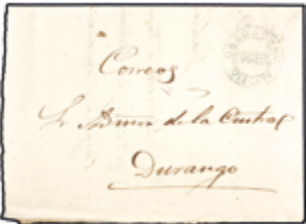 Correos
Sr Admor de la Central
Durango